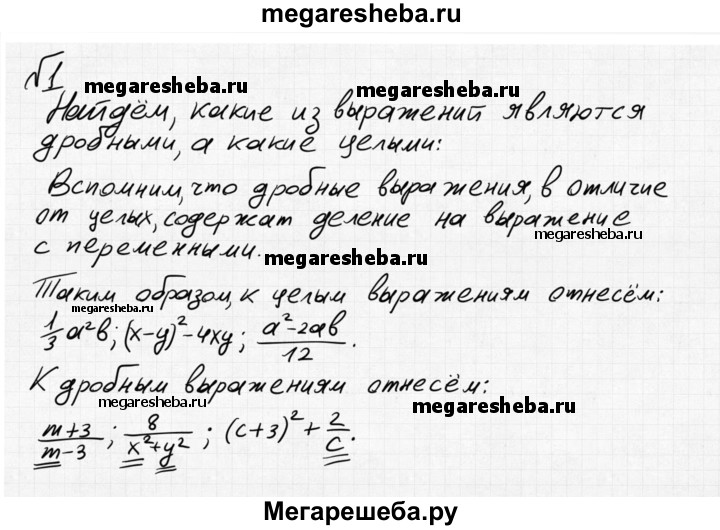 megaresheba.ru
№1
megaresheba.ru
Найдём, какие из выражений являются
дробными, а какие целыми:
Вспомним, что дробные выражения, в отличие
от целых, содержат деление на выражение
megaresheba.ru
с переменными.
megaresheba.ru
Таким образом, к целым выражениям отнесём:
megaresheba.ru
1/3 a²b; (x-y)²-4xy; (a²-2ab)/12.
К дробным выражениям отнесём:
megaresheba.ru megaresheba.ru
(m+3)/(m-3); 8/(x²+y²); (c+3)²+2/c.
Мегарешеба.ру